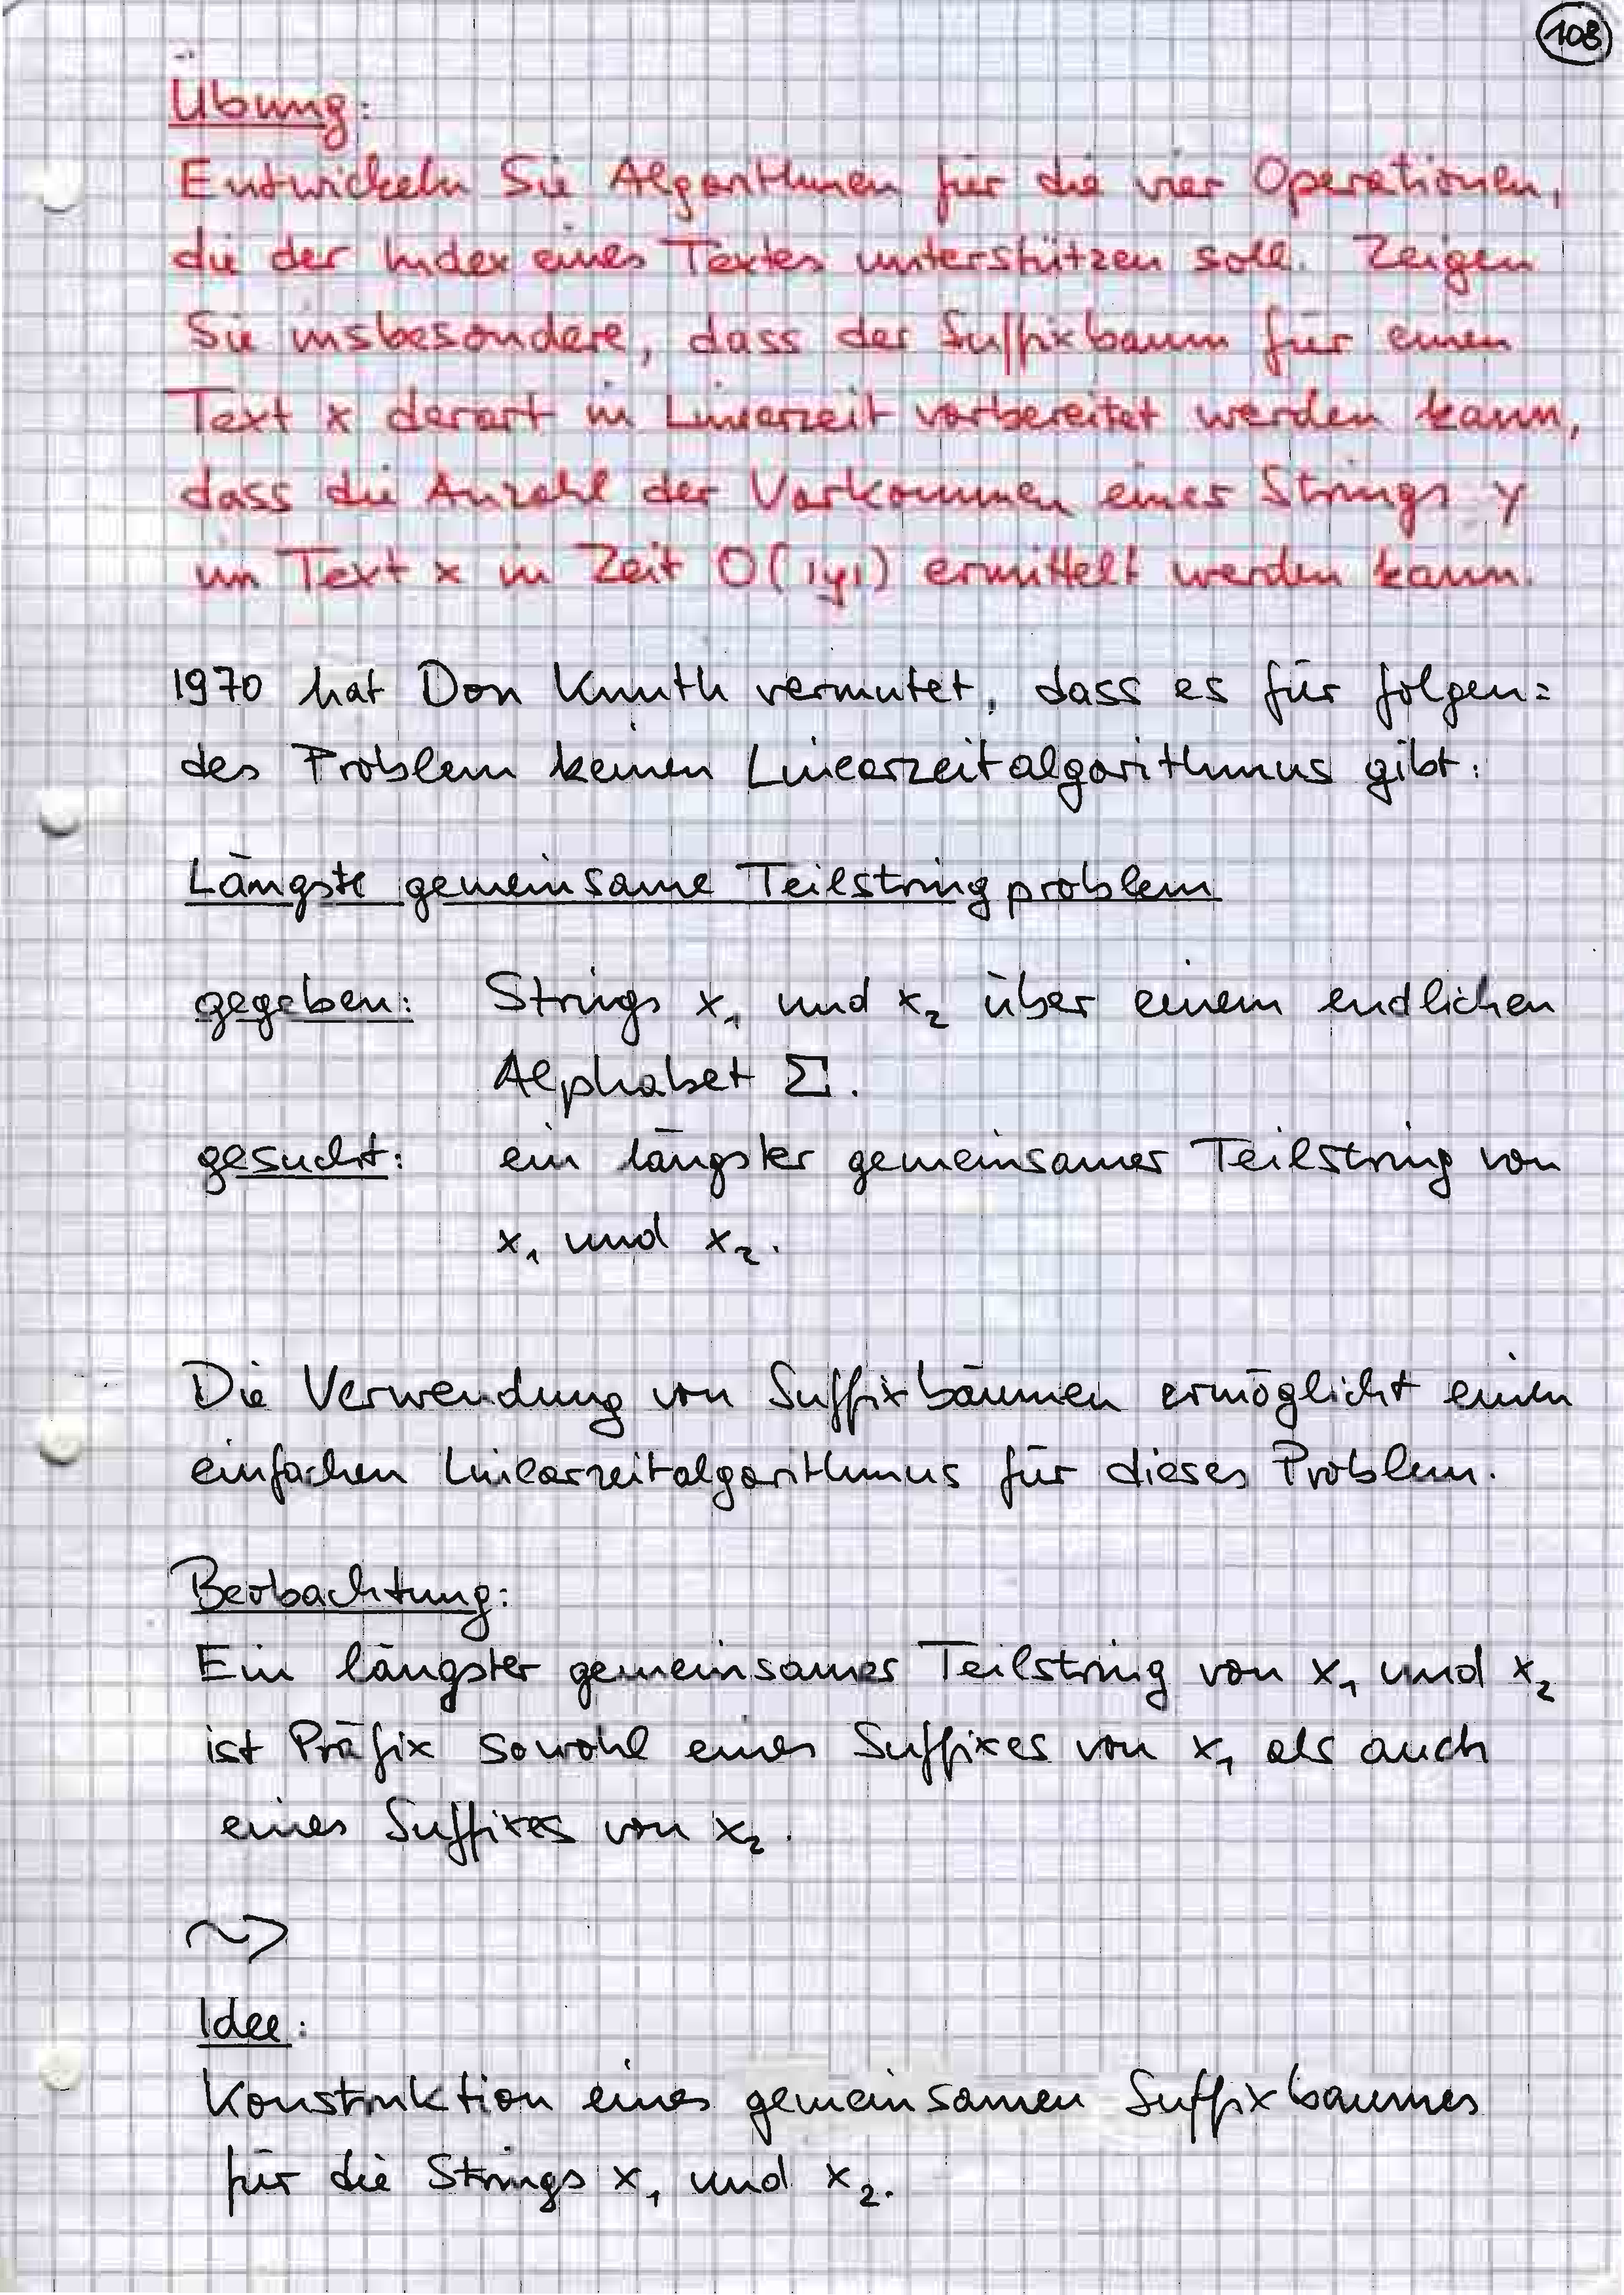 108
Übung:
Entwickeln Sie Algorithmen für die vier Operationen,
die der Index eines Textes unterstützen soll. Zeigen
Sie insbesondere, dass der Suffixbaum für einen
Text x derart in Linearzeit vorbereitet werden kann,
dass die Anzahl der Vorkommen eines Strings y
im Text x in Zeit O(|y|) ermittelt werden kann.
1970 hat Don Knuth vermutet, dass es für folgen=
des Problem keinen Linearzeitalgorithmus gibt:
Längste gemeinsame Teilstringproblem
gegeben: Strings x₁ und x₂ über einem endlichen
Alphabet Σ.
gesucht: ein längster gemeinsamer Teilstring von
x₁ und x₂.
Die Verwendung von Suffixbäumen ermöglicht einen
einfachen Linearzeitalgorithmus für dieses Problem.
Beobachtung:
Ein längster gemeinsamer Teilstring von x₁ und x₂
ist Präfix sowohl eines Suffixes von x₁ als auch
eines Suffixes von x₂.
~>
Idee:
Konstruktion eines gemeinsamen Suffixbaumes
für die Strings x₁ und x₂.